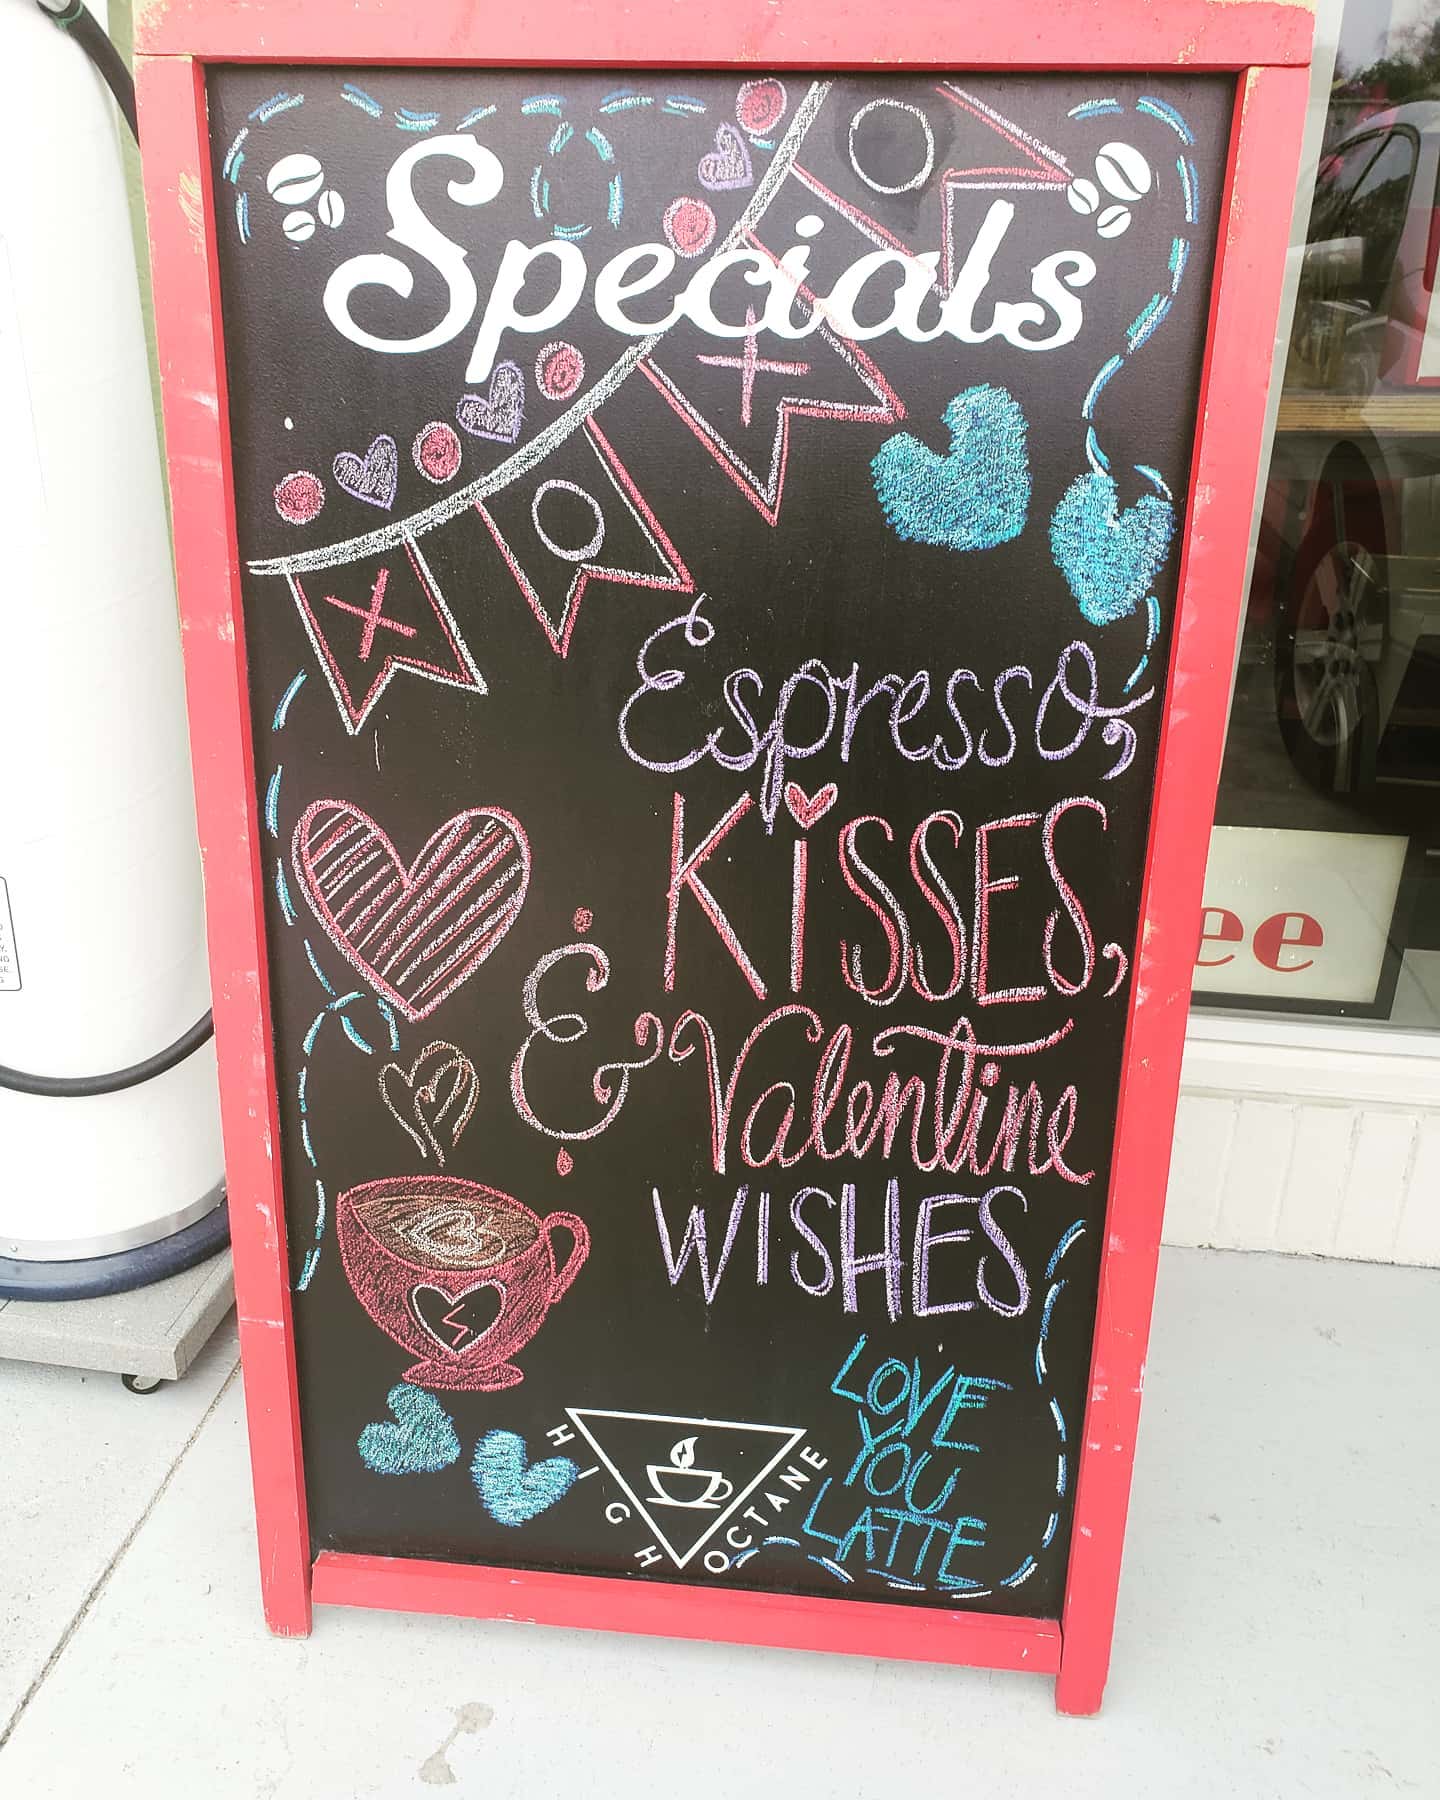 Specials
X O X O
Espresso,
KiSSES,
& Valentine
WISHES
LOVE
YOU
LATTE
HIGH OCTANE
ee